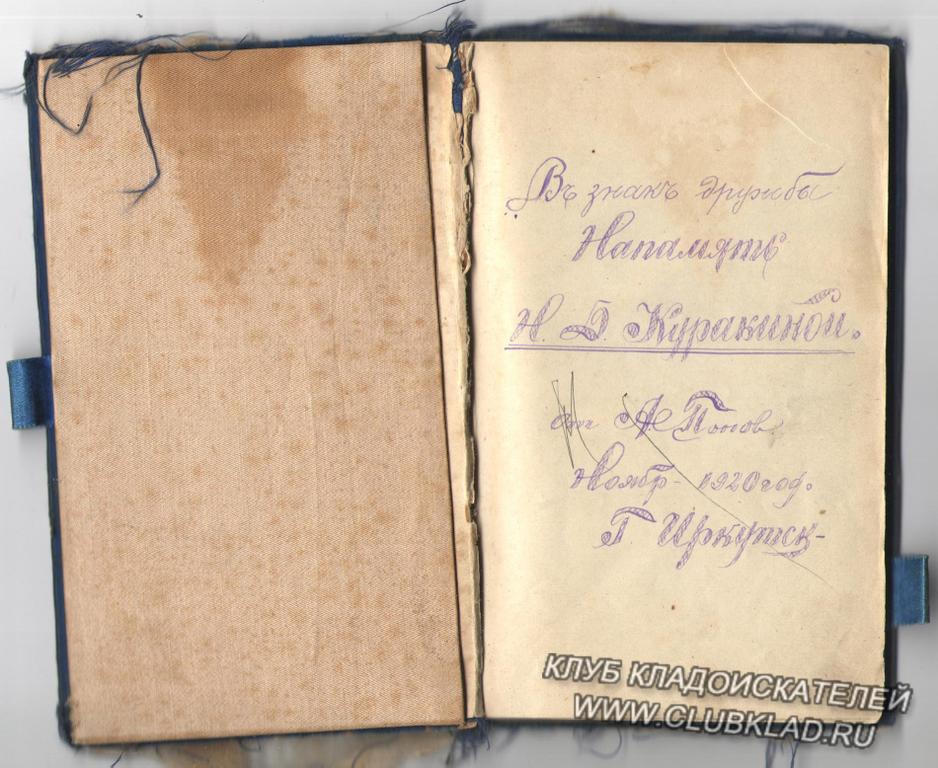 Въ знакъ дружбы
Напамять
Н. Д. Куракиной.
отъ А. Попов
Ноябр - 1920 год.
Г. Иркутск-
КЛУБ КЛАДОИСКАТЕЛЕЙ
WWW.CLUBKLAD.RU